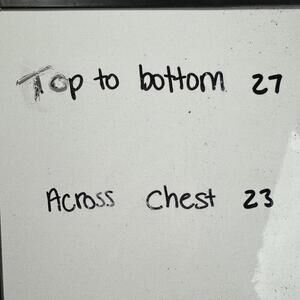 Top to bottom 27
Across Chest 23